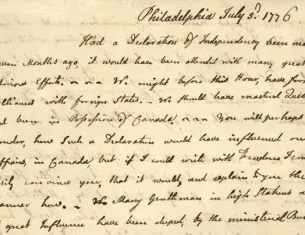 Philadelphia July 3d. 1776
Had a Declaration of Independency been ma
even Months ago, it would have been attended with many great
Effects We might before this Hour, have for
lliances with foreign States. We should have mastered Quebe
d been in Possession of Canada You will perhaps
onder, how Such a Declaration would have influenced our
ffairs, in Canada, but if I could write with Freedom I ca
sily convince you, that it would, and explain to you the
anner how. Many Gentlemen in high Stations a
great Influence have been duped, by the ministerial Bu